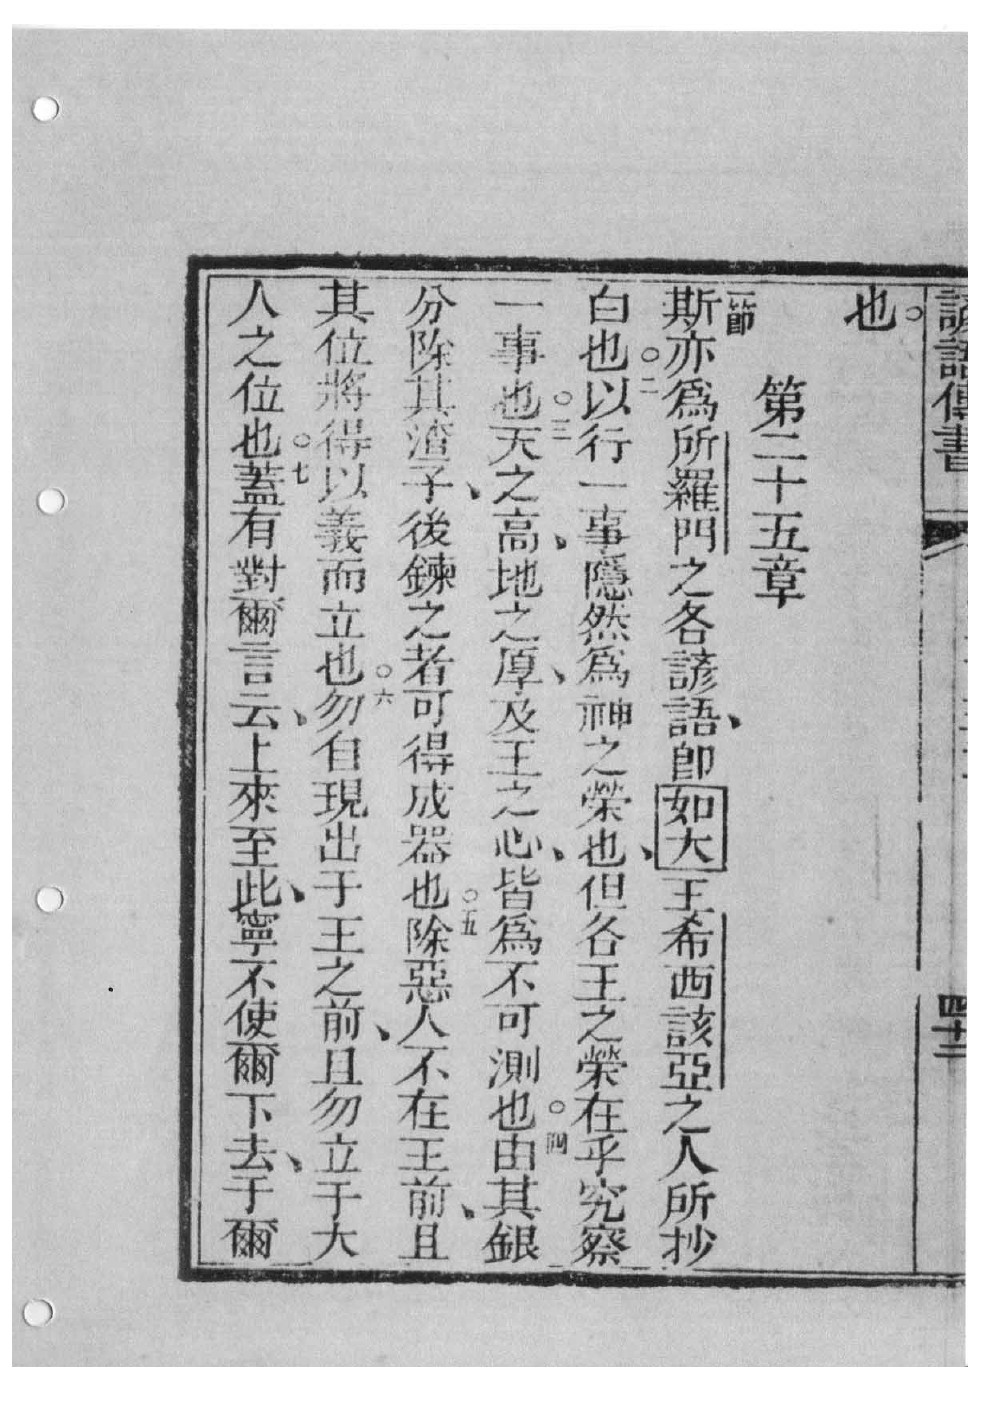 諺語傳書
四十二
也。
第二十五章
一節斯亦爲所羅門之各諺語、卽如大王希西該亞之人所抄
白也。二以行一事隱然爲神之榮也、但各王之榮在乎究察
一事也。三天之高、地之厚、及王之心、皆爲不可測也。四由其銀
分除其渣子、後鍊之者可得成器也。五除惡人不在王前、且
其位將得以義而立也。六勿自現出于王之前、且勿立于大
人之位也。七蓋有對爾言云、上來至此、寧不使爾下去、于爾